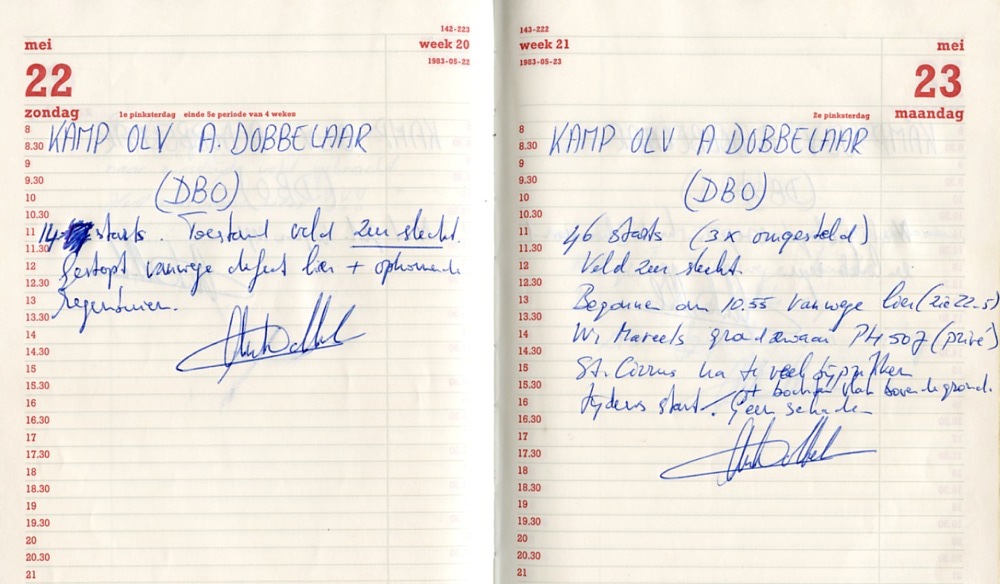 mei
142-223
week 20
1983-05-22
22
zondag
1e pinksterdag einde 5e periode van 4 weken
8
8.30 KAMP OLV A. DOBBELAAR
9
9.30
10 (DBO)
10.30
11 14 starts. Toestand veld zeer slecht.
11.30
12 Gestopt vanwege defect lier + opkomende
12.30
13 regenbuien.
13.30
14
14.30
15
15.30
16
16.30
17
17.30
18
18.30
19
19.30
20
20.30
21
143-222
week 21
mei
1983-05-23
23
2e pinksterdag
maandag
8
8.30 KAMP OLV A DOBBELAAR
9
9.30
10 (DBO)
10.30
11 46 starts (3x omgesteld)
11.30
12 Veld zeer slecht.
12.30
13 Begonnen om 10.55 vanwege lier (zie 22-5)
13.30
14 W. Mareels PH 507 (privé)
14.30
15 St. Cirrus na te veel
15.30 + bochten vlak boven de grond.
16 tijdens start. Geen schade
16.30
17
17.30
18
18.30
19
19.30
20
20.30
21